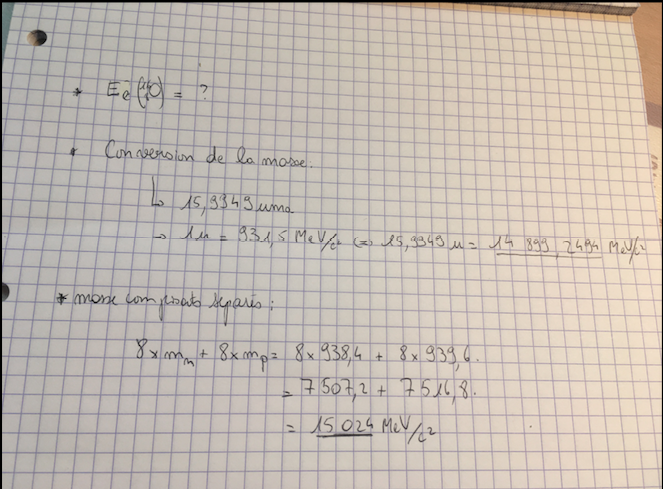 * Eℓ(¹⁶₈O) = ?
* Conversion de la masse.
↳ 15,9949 uma
→ 1u = 931,5 MeV/c² <=> 15,9949 u = 14 899, 2494 MeV/c²
* masse composants séparés :
8 x mₙ + 8 x mₚ = 8 x 938,4 + 8 x 939,6.
= 7 507,2 + 7 516,8.
= 15 024 MeV/c²